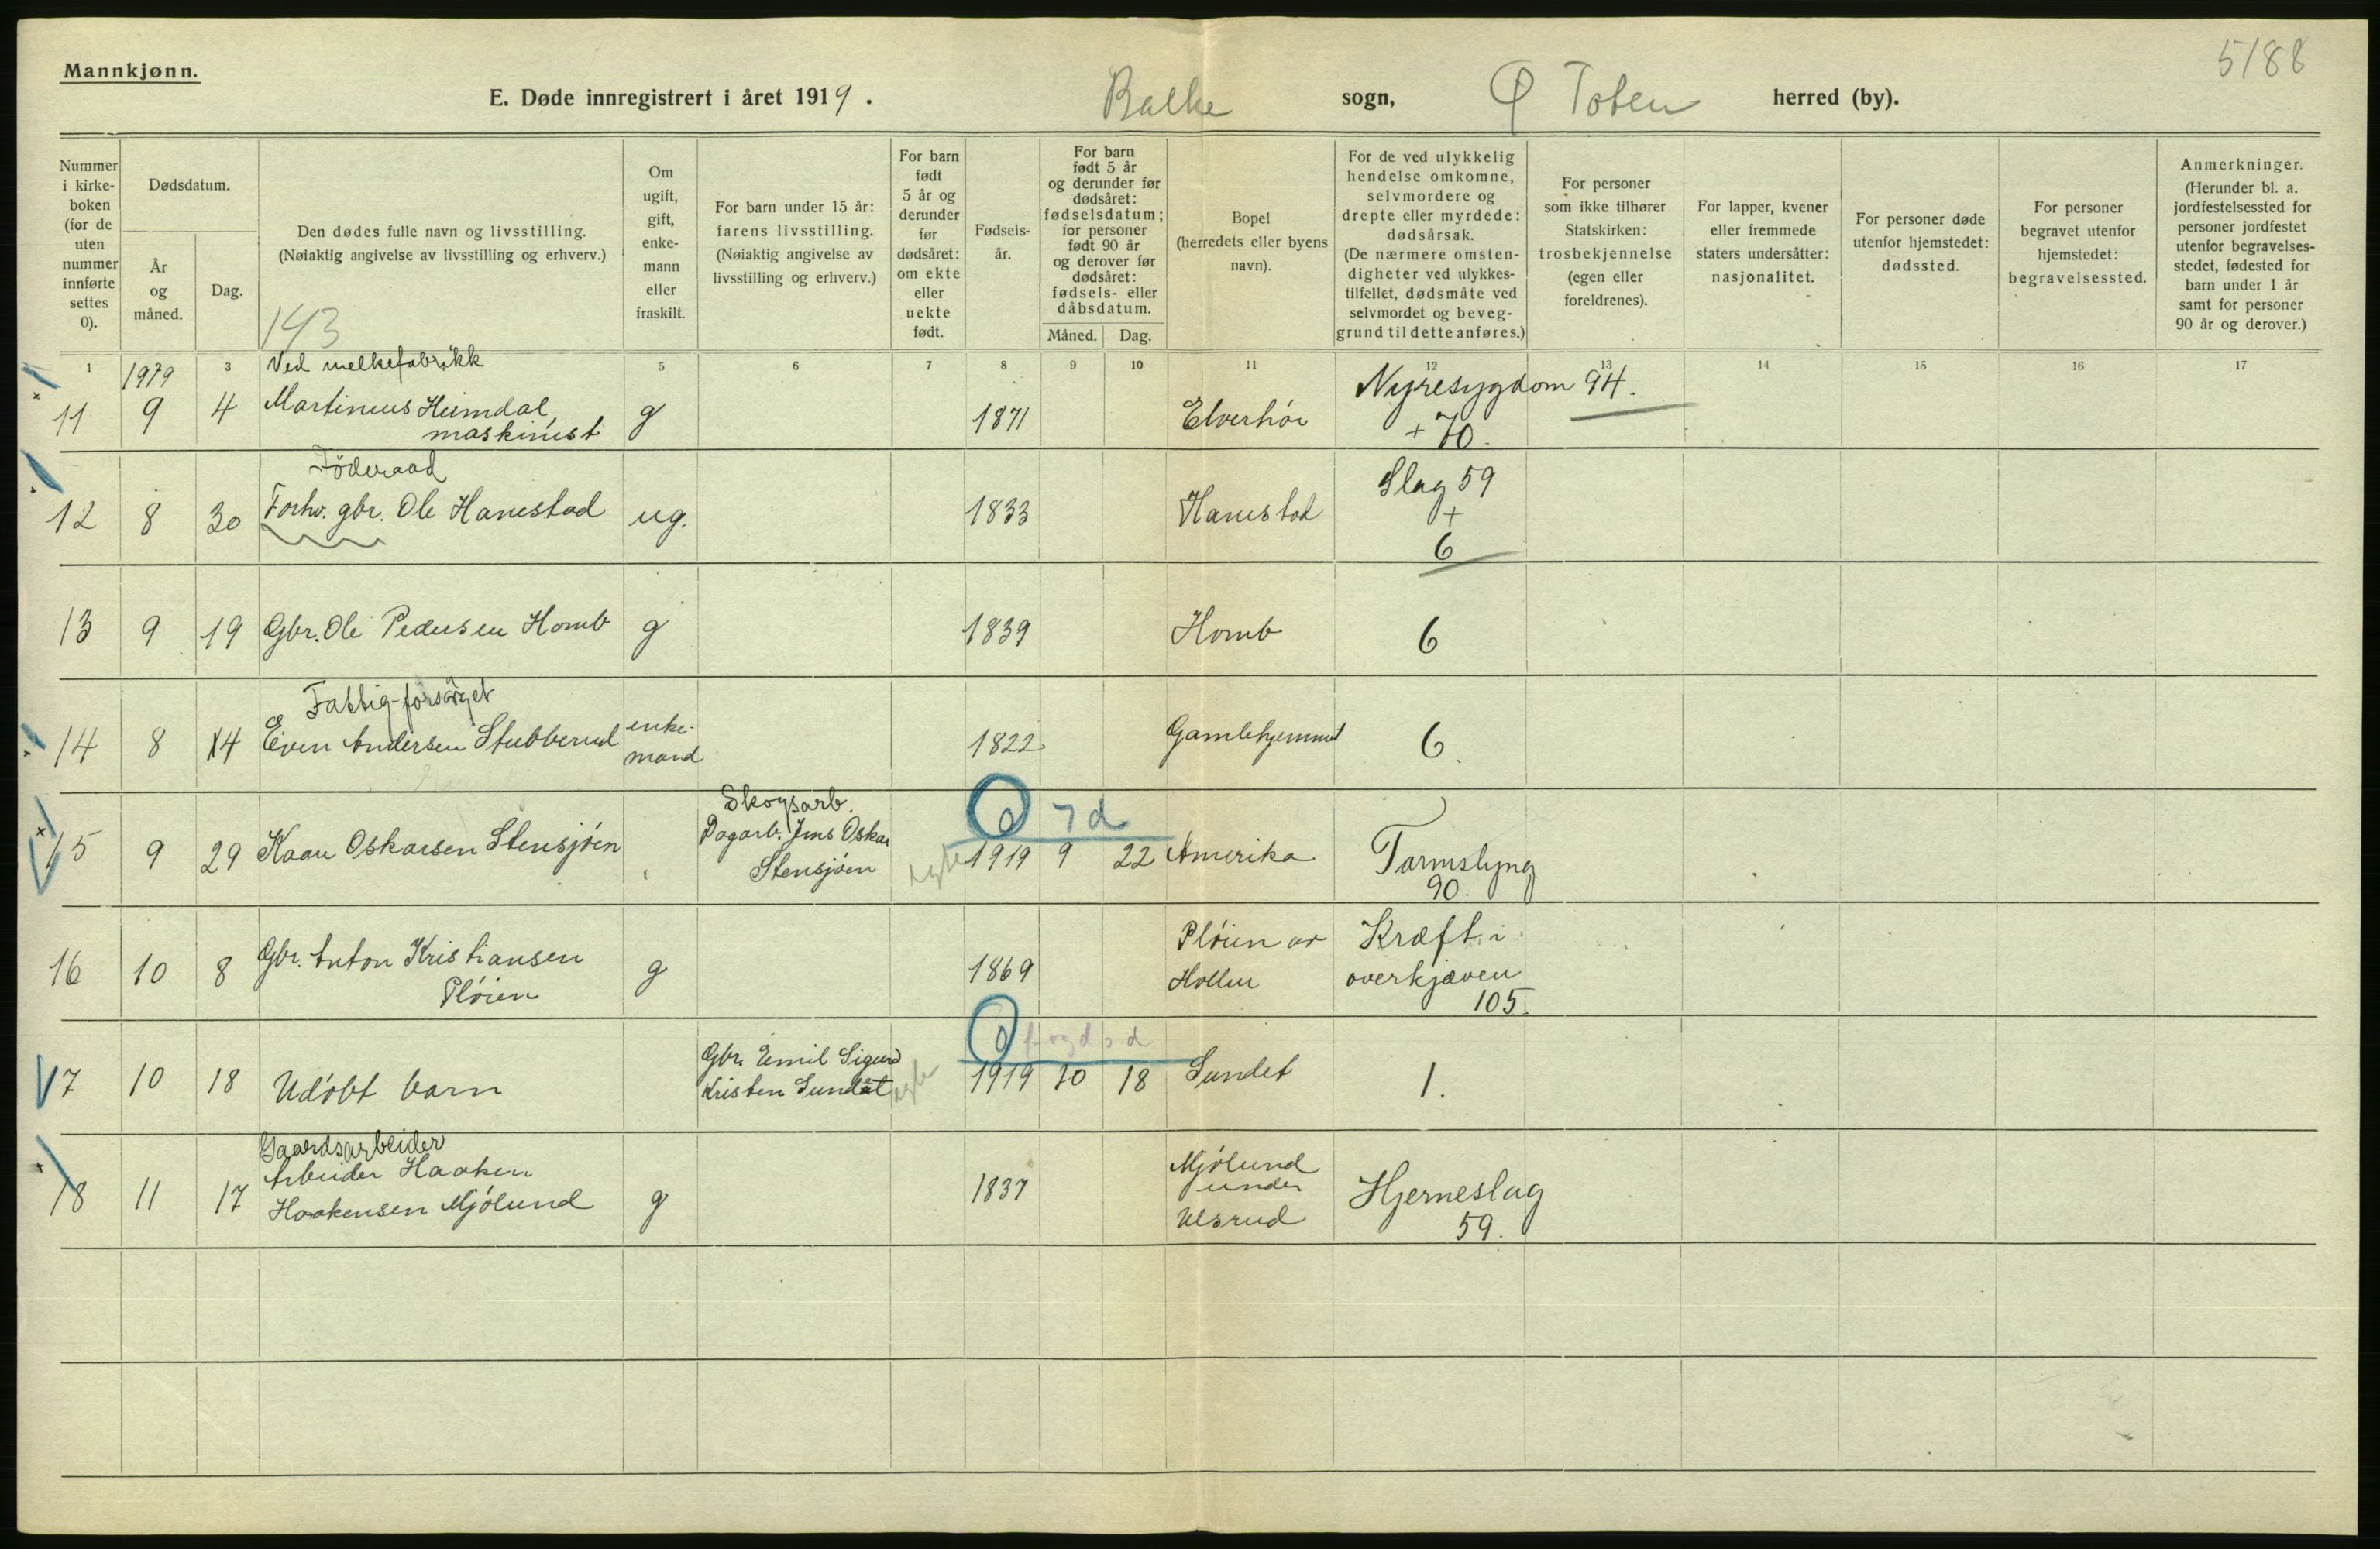 Mannkjønn.
5188
E. Døde innregistrert i året 1919.
Balke sogn, Ø Toten herred (by).
Nummer i kirke-boken (for de uten nummer innførte settes 0).
Dødsdatum.
År og måned.
Dag.
Den dødes fulle navn og livsstilling.
(Nøiaktig angivelse av livsstilling og erhverv.)
143
Om ugift, gift, enke-mann eller fraskilt.
For barn under 15 år: farens livsstilling.
(Nøiaktig angivelse av livsstilling og erhverv.)
For barn født 5 år og derunder før dødsåret: om ekte eller uekte født.
Fødsels-år.
For barn født 5 år og derunder før dødsåret: fødselsdatum; for personer født 90 år og derover før dødsåret: fødsels- eller dåbsdatum.
Måned. Dag.
Bopel (herredets eller byens navn).
For de ved ulykkelig hendelse omkomne, selvmordere og drepte eller myrdede: dødsårsak.
(De nærmere omsten-digheter ved ulykkes-tilfellet, dødsmåte ved selvmordet og beveg-grund til dette anføres.)
For personer som ikke tilhører Statskirken: trosbekjennelse (egen eller foreldrenes).
For lapper, kvener eller fremmede staters undersåtter: nasjonalitet.
For personer døde utenfor hjemstedet: dødssted.
For personer begravet utenfor hjemstedet: begravelsessted.
Anmerkninger.
(Herunder bl. a. jordfestelsessted for personer jordfestet utenfor begravelses-stedet, fødested for barn under 1 år samt for personer 90 år og derover.)
1 3 5 6 7 8 9 10 11 12 13 14 15 16 17
1919
Ved melkefabrikk
11 9 4 Martinius Heimdal, maskinist g 1871 Elverhöi Nyresygdom 94.
+ 70.
Föderaad
12 8 30 Forhv. gbr. Ole Hanestad ug. 1833 Hanestad Slag 59
+
6
13 9 19 Gbr. Ole Pedersen Homb g 1839 Homb 6
Fattig-forsörget
14 8 14 Even Andersen Stubberud enke-mand 1822 Gamlehjemmet 6.
Skogsarb. 0 7 d
15 9 29 Kaare Oskarsen Stensjöen Dagarb. Jens Oskar Stensjöen ægte 1919 9 22 Amerika Tarmslyng
90.
16 10 8 Gbr. Anton Kristiansen Plöien g 1869 Plöien av Hollen Kræft i overkjæven
105.
0
17 10 18 Udöbt barn Gbr. Emil Sigurd Kristen Sundet ægte 1919 10 18 Sundet 1.
Gaardsarbeider
18 11 17 Arbeider Haaken Haakensen Mjölund g 1837 Mjölund under Ulsrud Hjerneslag
59.